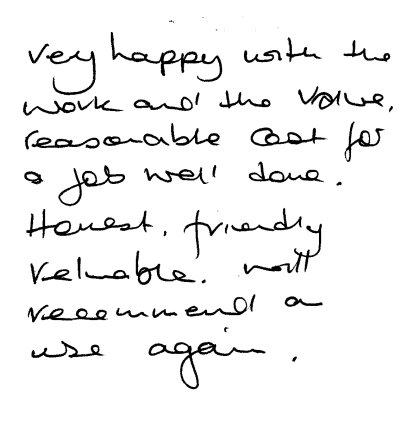 Very happy with the
work and the value,
reasonable cost for
a job well done.
Honest, friendly
reliable. will
recommend a
use again.